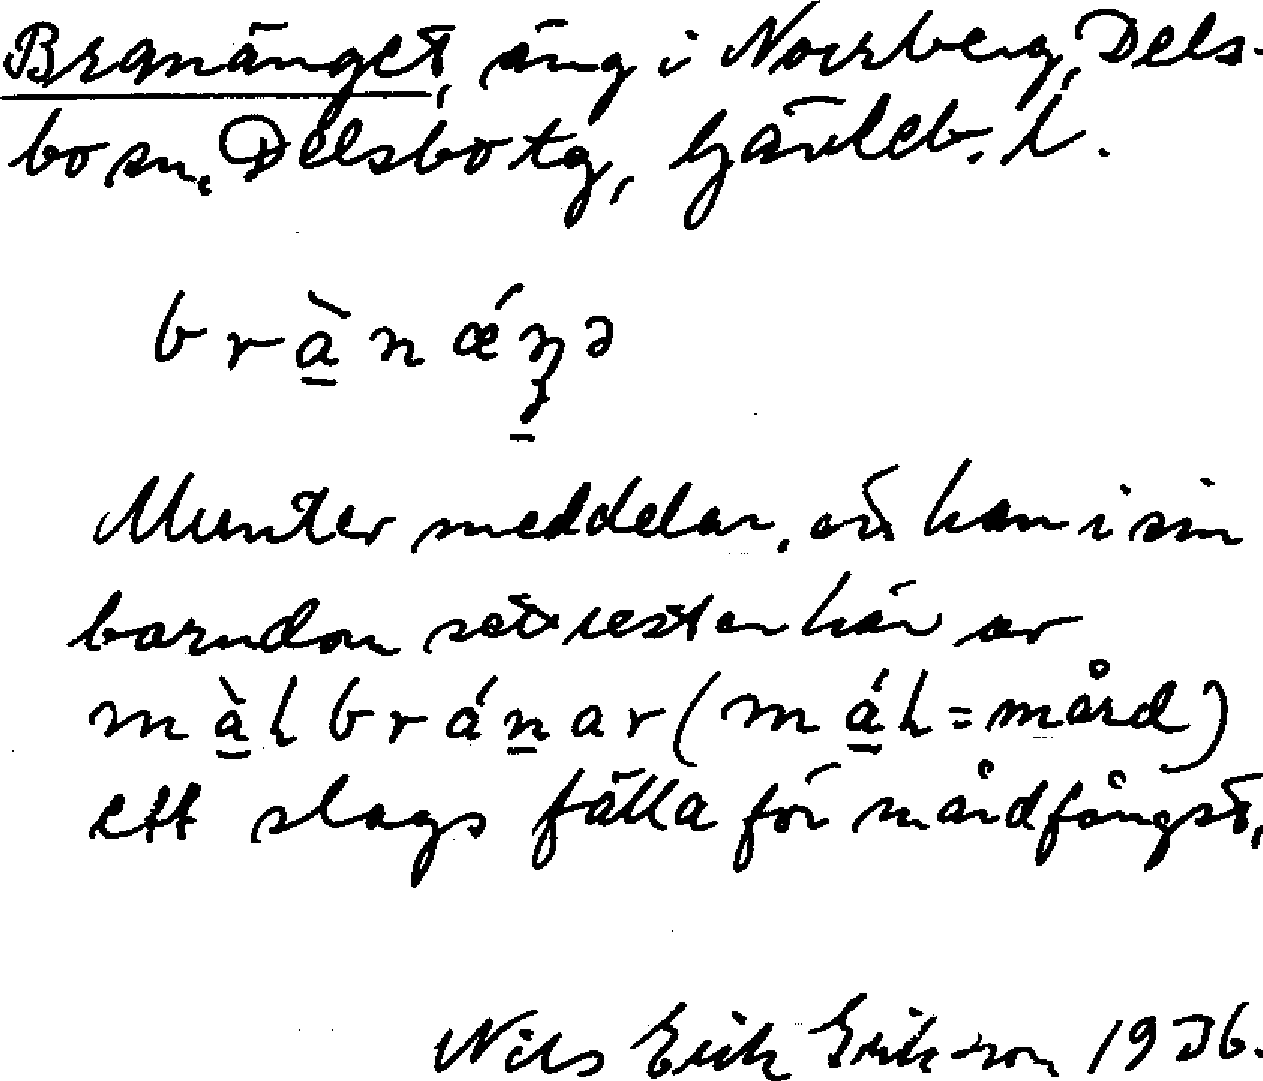 Branänget, äng i Norrberg, Dels-
bo sn, Delsbo tg, Gävleb. l.
br<u>à</u>nǽŋə
Munter meddelar, att han i sin
barndom sett rester här av
m<u>à</u>hbrá<u>n</u>ar (m<u>á</u>h = mård)
ett slags fälla för mårdfångst,
Nils Erik Erikson 1936.